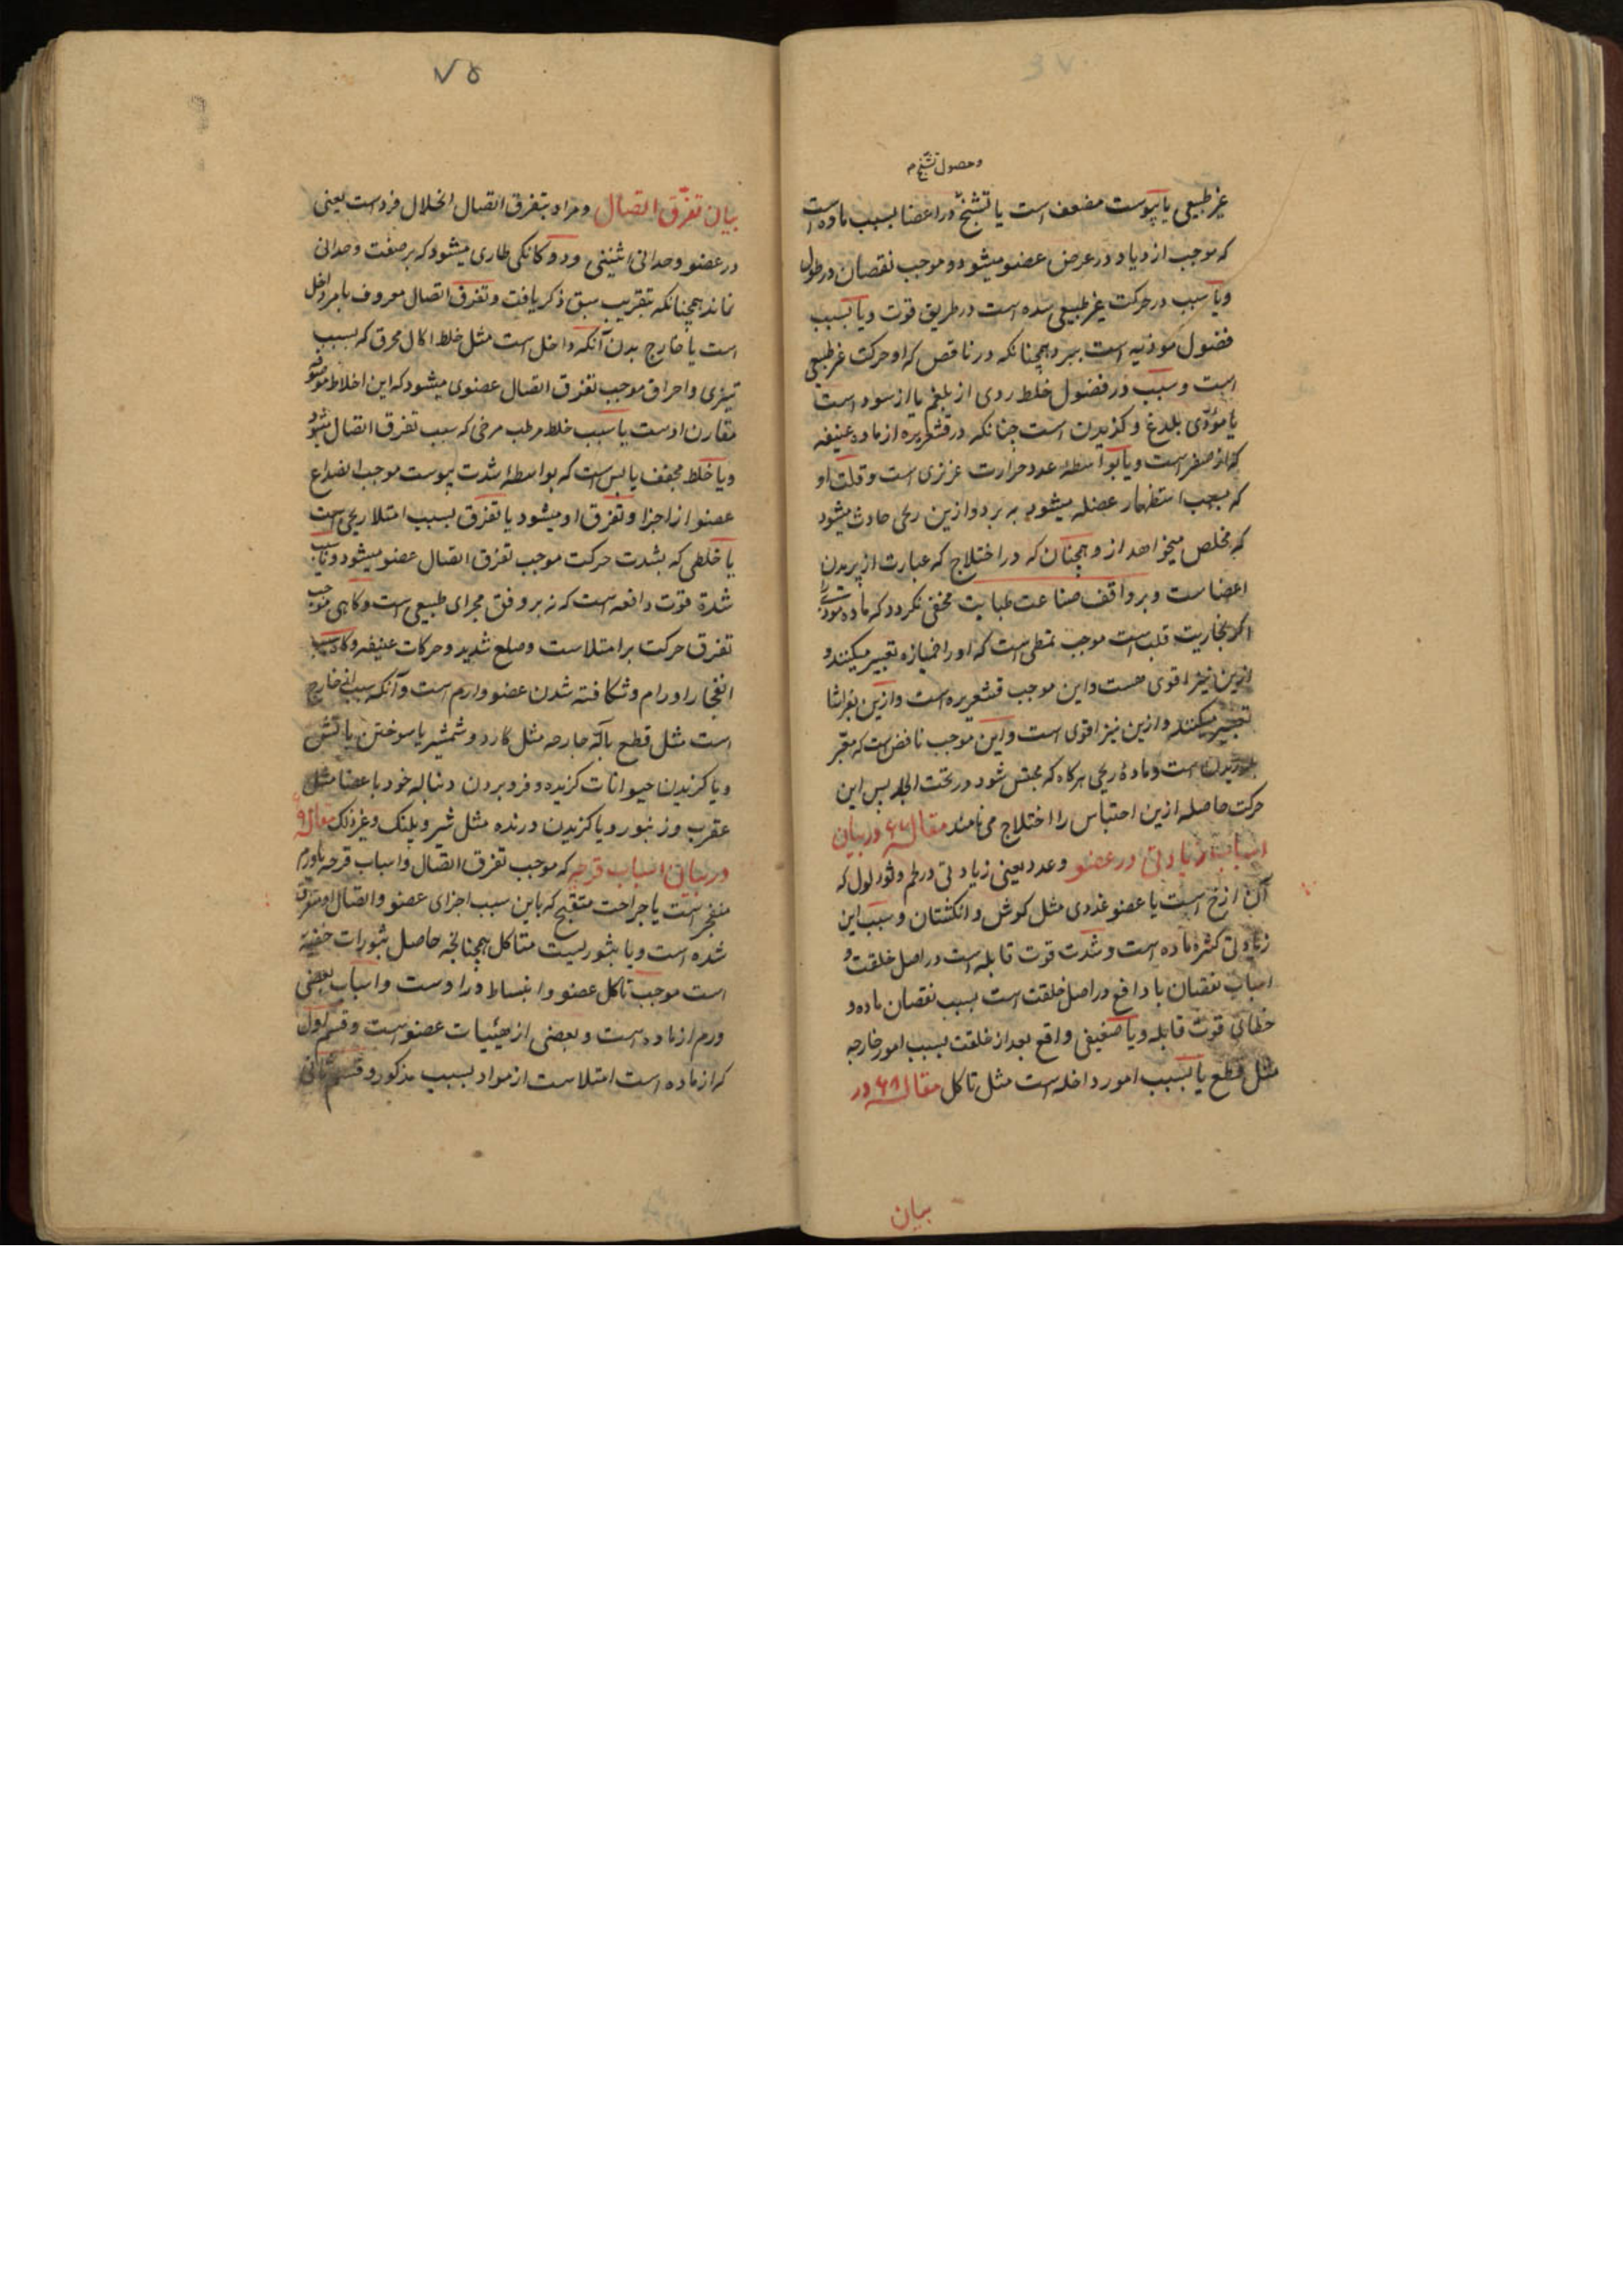 وحصول تشنج
غیر طبیعی یا یبوست مضعف است یا تشنج در اعضا بسبب ماده است
که موجب ازدیاد در عرض عضو میشود و موجب نقصان در طول
ویا سبب در حرکت غیر طبیعی سده است در طریق قوت ویا بسبب
فضول موذیه است ببرد همچنانکه در ناقص که او حرکت غیر طبیعی
است و سبب در فضول خلط ردی از بلغم یا از سودا است
یا مؤدی بلدغ و کزیدن است چنانکه در قشعریره از ماده عنیفه
که از صفرا است ویا بواسطه عدد حرارت عزیزی است و قلت او
که بسبب استظهار عضله میشود به برد و ازین ریحی حادث میشود
که مخلص میخواهد از و همچنان که در اختلاج که عبارت از پریدن
اعضاست و بر واقف صناعت طبابت مخفی نکردد که ماده موذیه
اکر بخاریت قلب است موجب تمطی است که او را خمیازه تعبیر میکنند و
ازین نیز اقوی هست و این موجب قشعریره است و ازین بفراشا
تعبیر میکنند و ازین نیز اقوی است و این موجب نافض است که معبر
بلرزیدن است و ماده ریحی هرکاه که محتبس شود در تحت الجلد پس این
حرکت حاصله ازین احتباس را اختلاج می نامند مقاله ۶۷ در بیان
اسباب زیادتی در عضو و عدد یعنی زیادتی در لحم و ثورلول که
آن ازخ است یا عضو غددی مثل کوش و انکشتان و سبب این
زیادتی کثره ماده است و شدت قوت قابله است در اصل خلقت و
اسباب نقصان یا دافع در اصل خلقت است بسبب نقصان ماده و
خطای قوت قابله ویا ضعیفی واقع بعد از خلقت بسبب امور خارجه
مثل قطع یا بسبب امور داخله است مثل تاکل مقاله ۶۸ در
بیان
۷۵
بیان تفرق اتصال و مراد بتفرق اتصال انحلال فرد است یعنی
در عضو وحدانی اثنینی و دوکانکی طاری میشود که بر صفت وحدانی
نماند همچنانکه بتقریب سبق ذکر یافت و تفرق اتصال معروف بامر داخل
است یا خارج بدن آنکه داخل است مثل خلط اکال محرق که بسبب
تیزی و احراق موجب تفرق اتصال عضوی میشود که این اخلاط موصوفه
مقارن اوست یا سبب خلط مرطب مرخی که سبب تفرق اتصال میشود
ویا خلط مجفف یابس است که بواسطه شدت یبوست موجب انصداع
عضو از اجزا و تفرق او میشود یا تفرق بسبب امتلا ریحی است
یا خلطی که بشدت حرکت موجب تفرق اتصال عضو میشود ویا بسبب
شدة قوت دافعه است که نه بر وفق مجرای طبیعی است و کاهی موجب
تفرق حرکت بر امتلاست و صلع شدید و حرکات عنیفه و کاه سبب
انفجار اورام و شکافته شدن عضو وارم است و آنکه سبب او خارج
است مثل قطع بآله جارحه مثل کارد و شمشیر یا سوختن باتش
ویا کزیدن حیوانات کزیده و فرو بردن دنباله خود باعضا مثل
عقرب و زنبور ویا کزیدن درنده مثل شیر و پلنک و غیر ذلک مقاله ۶۹
در بیان اسباب قرحه که موجب تفرق اتصال و اسباب قرحه یا ورم
منفجر است یا جراحت متقیح که باین سبب اجزای عضو و اتصال او متفرق
شده است ویا بثور لیست متاکل همچنانچه حاصل بثورات خفیه
است موجب تاکل عضو و انبساط در اوست و اسباب بعضی
ورم از ماده است و بعضی از هیئیات عضو است و قسم اول
که از ماده است امتلاست از مواد بسبب مذکور و قسم ثانی